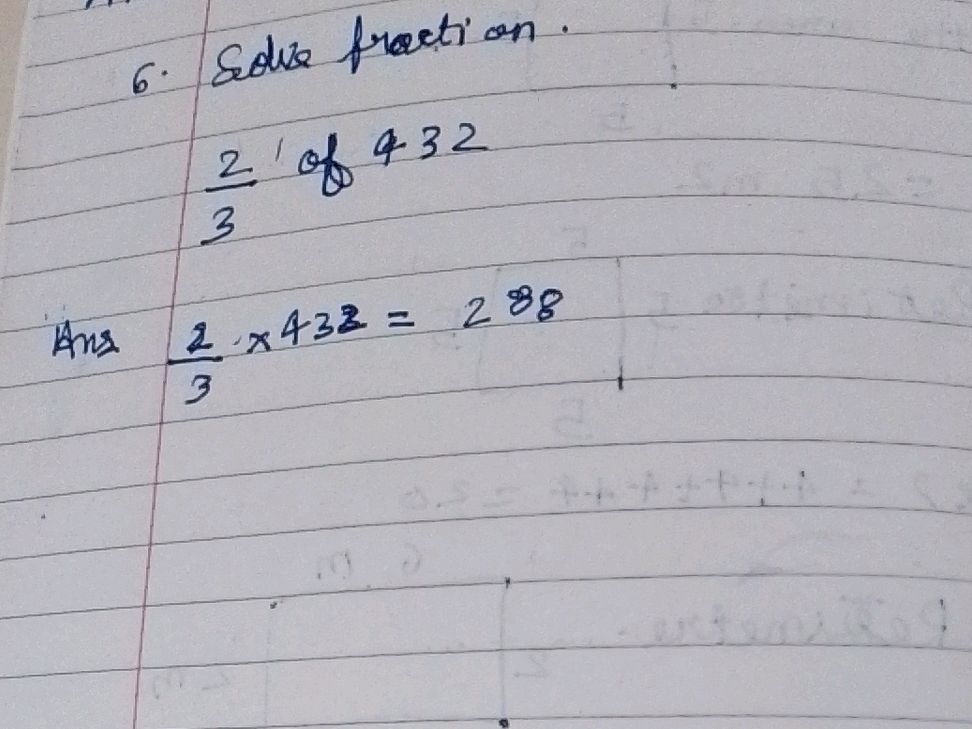 6. Solve fraction.
2/3 of 432
Ans 2/3 × 432 = 288